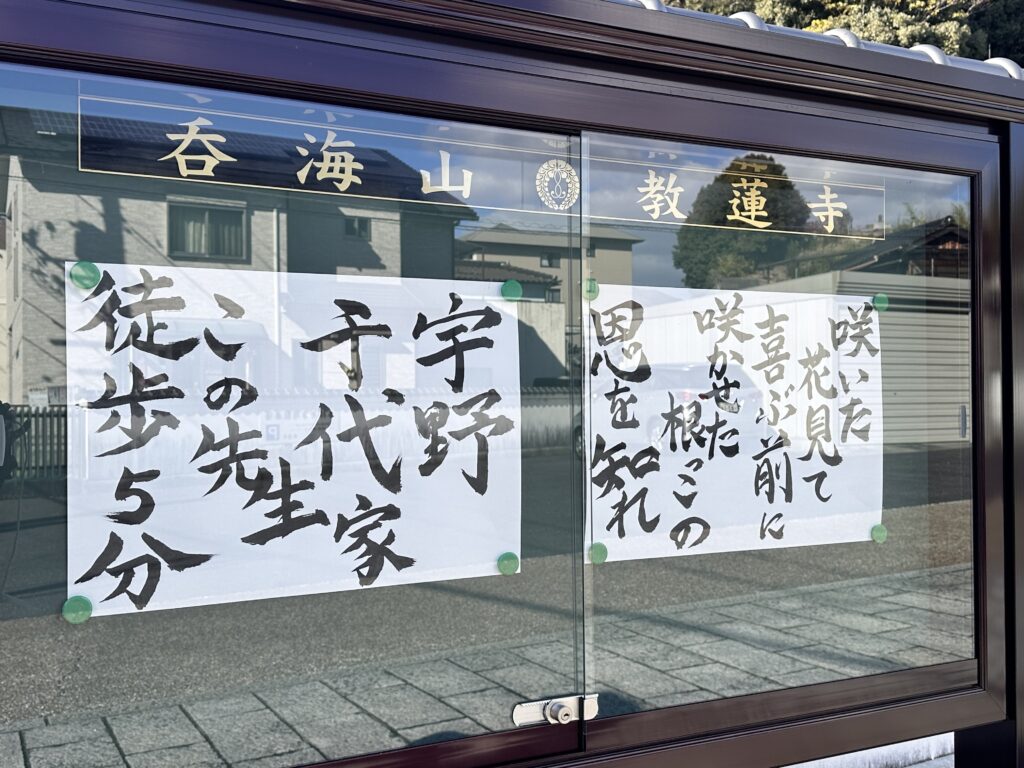 呑海山 教蓮寺
咲いた
花見て
喜ぶ前に
咲かせた
根っこの
恩を知れ
宇野
千代
家
この先生
徒歩5分